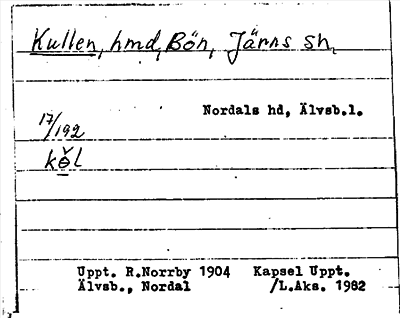 Kullen, hmd, Bön, Järns sn.
Nordals hd, Älvsb.l.
17/192
kө̌l
Uppt. R.Norrby 1904 Kapsel Uppt.
Älvsb., Nordal /L.Aks. 1982